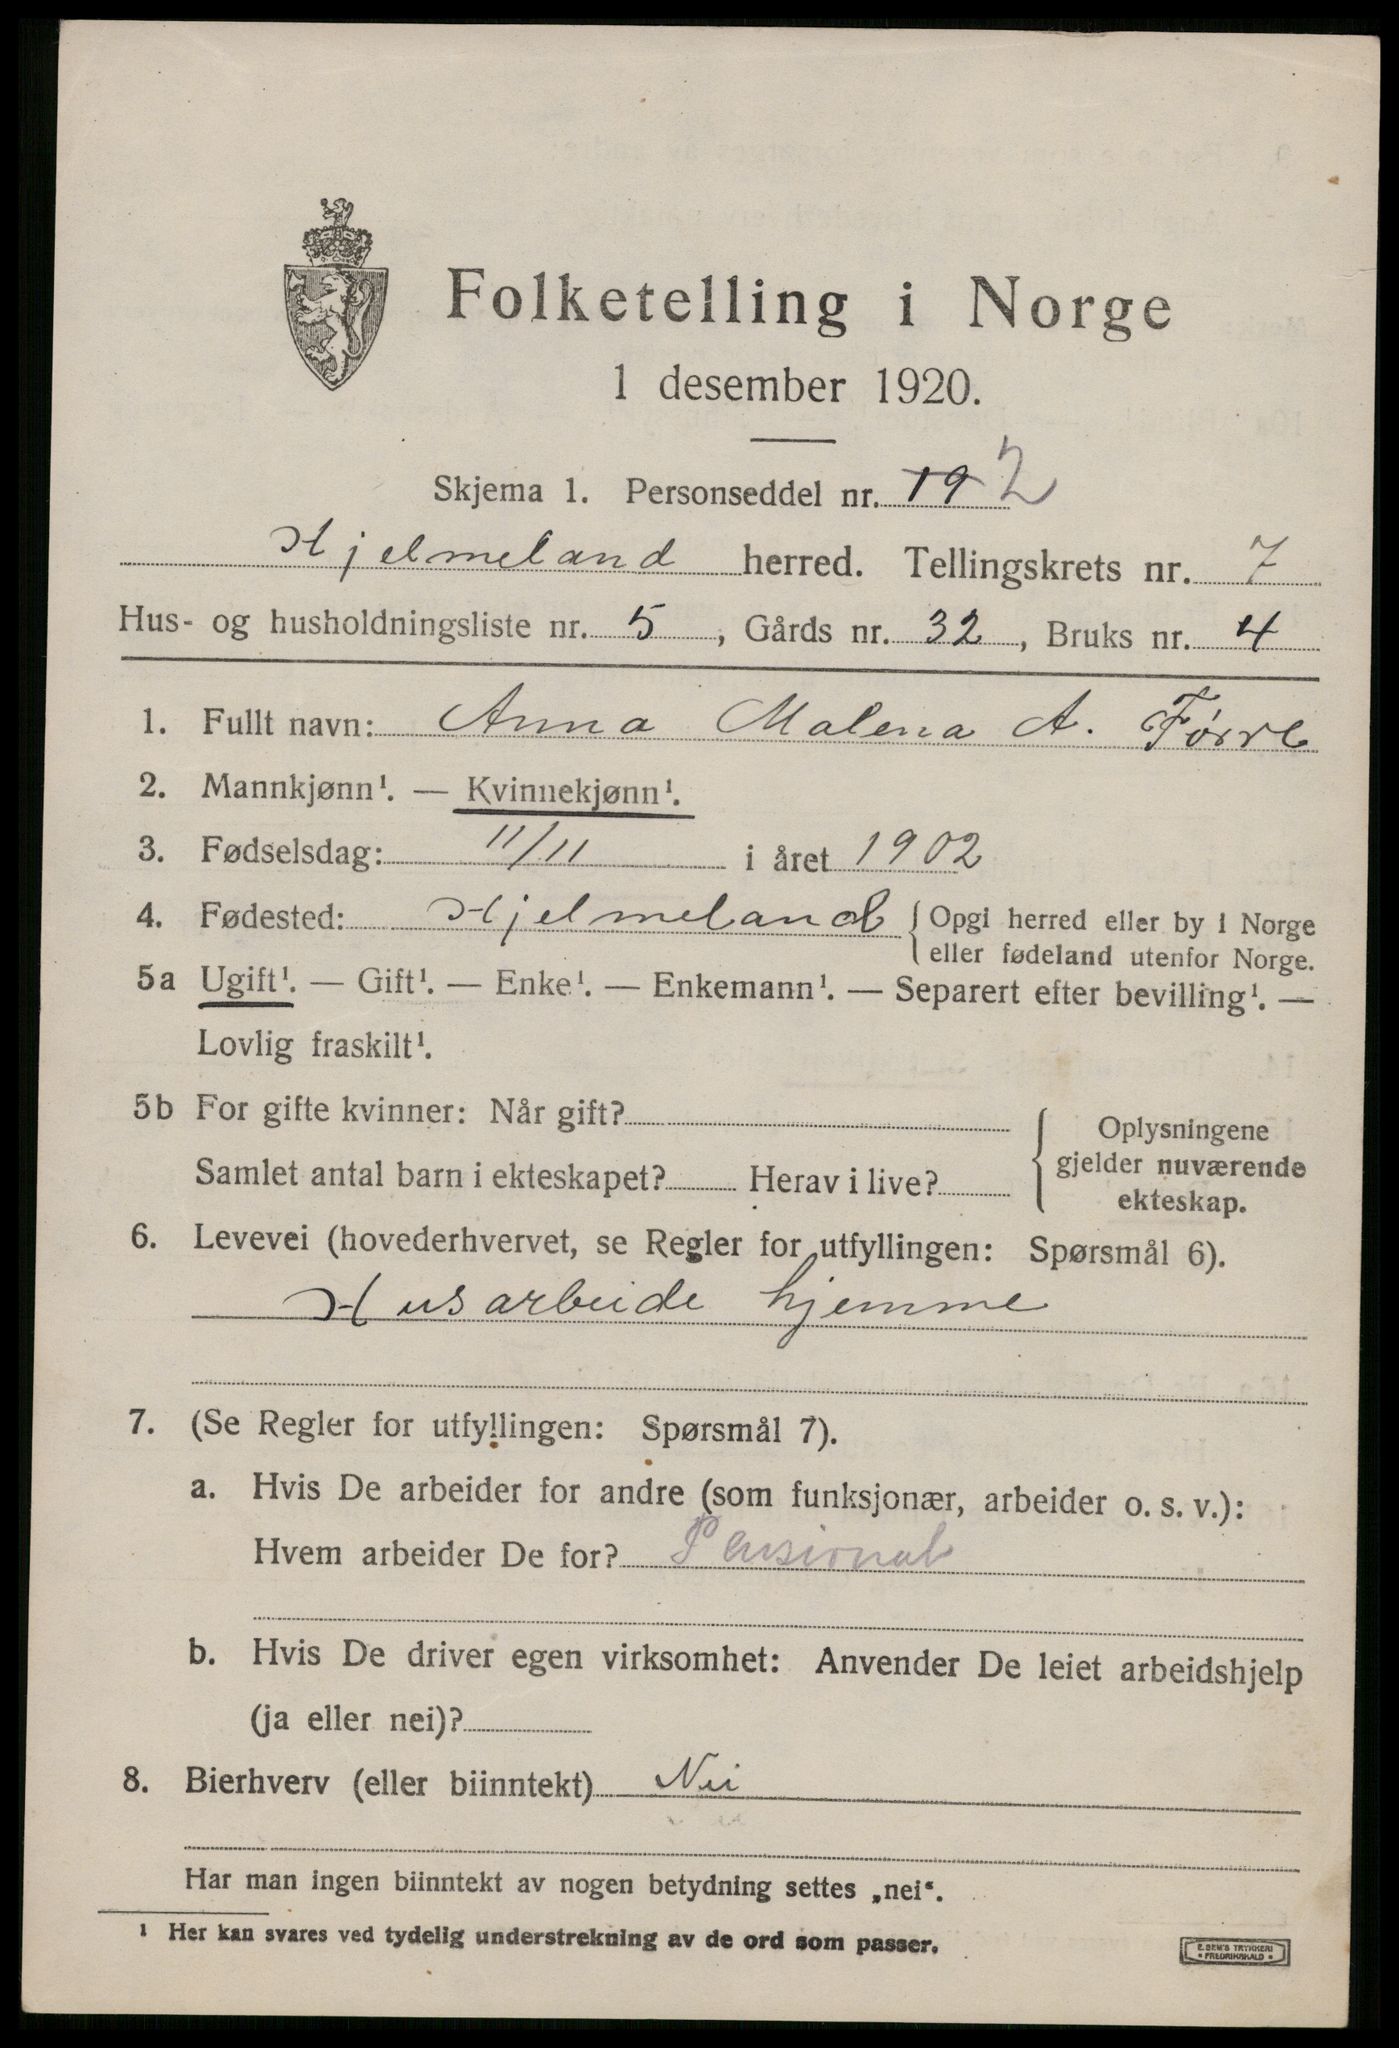 Folketelling i Norge
1 desember 1920.
Skjema 1. Personseddel nr. 19 2
Hjelmeland herred. Tellingskrets nr. 7
Hus- og husholdningsliste nr. 5, Gårds nr. 32, Bruks nr. 4
1. Fullt navn: Anna Malena A. Førre
2. Mannkjønn¹. — Kvinnekjønn¹.
3. Fødselsdag: 11/11 i året 1902
4. Fødested: Hjelmeland { Opgi herred eller by i Norge
eller fødeland utenfor Norge.
5a Ugift¹. — Gift¹. — Enke¹. — Enkemann¹. — Separert efter bevilling¹. —
Lovlig fraskilt¹.
5b For gifte kvinner: Når gift?
Samlet antal barn i ekteskapet? Herav i live?
{ Oplysningene
gjelder nuværende
ekteskap.
6. Levevei (hovederhvervet, se Regler for utfyllingen: Spørsmål 6).
Husarbeide hjemme
7. (Se Regler for utfyllingen: Spørsmål 7).
a. Hvis De arbeider for andre (som funksjonær, arbeider o. s. v.):
Hvem arbeider De for? Pensionat
b. Hvis De driver egen virksomhet: Anvender De leiet arbeidshjelp
(ja eller nei)?
8. Bierhverv (eller biinntekt) Nei
Har man ingen biinntekt av nogen betydning settes „nei“.
¹ Her kan svares ved tydelig understrekning av de ord som passer.
E. SEM'S TRYKKERI
• FREDRIKSHALD •